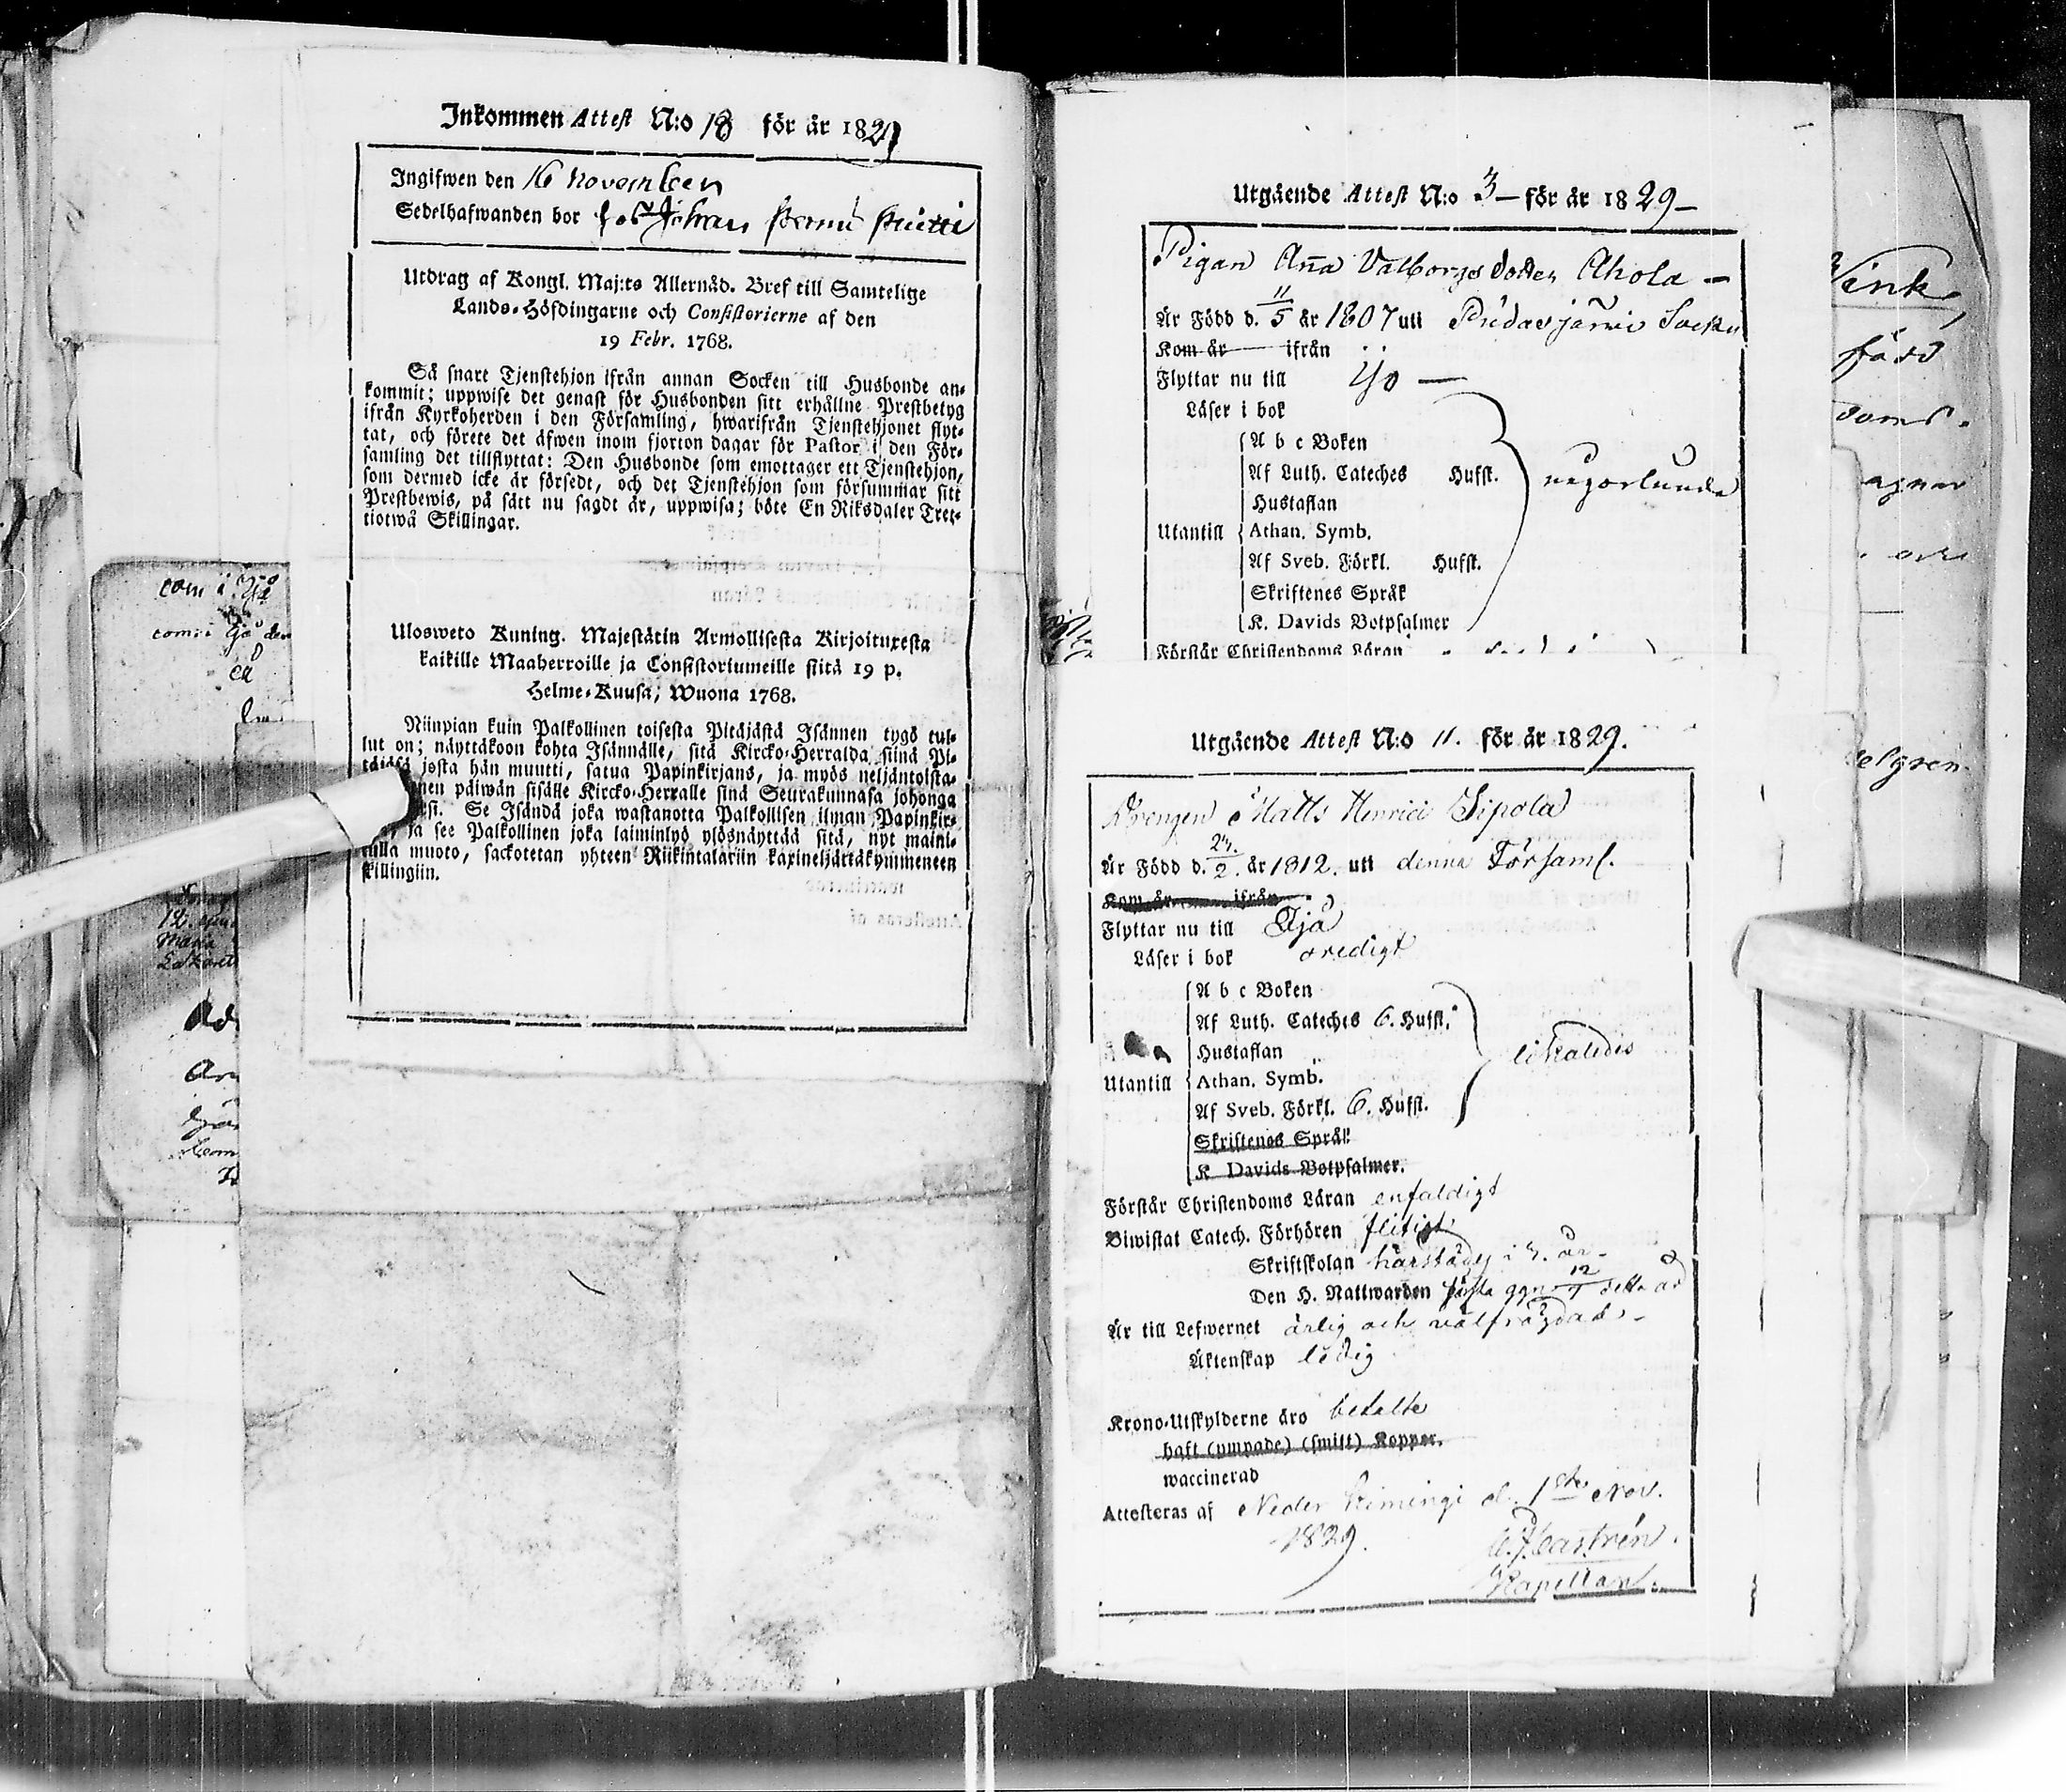 Inkommen Attest N:o 18 för år 1829
Ingifwen den 16 November
Sedelhafwanden bor hos Johan
Utdrag af Kongl. Maj:ts Allernåd. Bref till Samtelige
Lands-Höfdingarne och Consistorierne af den
19 Febr. 1768.
Så snart Tjenstehjon ifrån annan Socken till Husbonde an-
kommit; uppwise det genast för Husbonden sitt erhållne Prestbetyg
ifrån Kyrkoherden i den Församling, hwarifrån Tjenstehjonet flyt-
tat, och förete det äfwen inom fjorton dagar för Pastor i den För-
samling det tillflyttat: Den Husbonde som emottager ett Tjenstehjon,
som dermed icke är försedt, och det Tjenstehjon som försummar sitt
Prestbewis, på sätt nu sagdt är, uppwisa; böte En Riksdaler Tret-
tiotwå Skillingar.
Ulosweto Kuning. Majestätin Armollisesta Kirjoituxesta
kaikille Maaherroille ja Consistoriumeille siitä 19 p.
Helme-Kuusa, Wuona 1768.
Niinpian kuin Palkollinen toisesta Pitäjästä Isännen tygö tul-
lut on; näyttäkoon kohta Isännälle, sitä Kircko-Herralda siinä Pi-
täjäsä josta hän muutti, saatua Papinkirjans, ja myös neljäntoista-
nen päiwän sisälle Kircko-Herralle siinä Seurakunnasa johonga
Se Isändä joka wastanotta Palkollisen ilman Papinkir-
ja see Palkollinen joka laiminlyö ylösnäyttää sitä, nyt maini-
tulla muoto, sackotetan yhteen Riikintalariin kaxineljättäkymmeneen
skillingiin.
com i Ijå
Utgående Attest N:o 3 för år 1829
Pigan Anna Valborgsdotter Ahola
Är Född d. 11/5 år 1807 uti Pudasjärwi Sockn
Kom år ifrån
Flyttar nu till Ijo
Läser i bok
A b c Boken
Af Luth. Cateches Hufst.
någorlunda
Hustaflan
Utantill Athan. Symb.
Af Sveb. Förkl. Hufst.
Skriftenes Språk
K. Davids Botpsalmer
Förstår Christendoms Läran
Utgående Attest N:o 11. för år 1829.
Drengen Matts Henrici Sipola
Är Född d. 24/2. år 1812. uti denna Församl.
Kom år ifrån
Flyttar nu till Ijå
Läser i bok oredigt
A b c Boken
Af Luth. Cateches 6. Hufst.
Hustaflan
likaledes
Utantill Athan. Symb.
Af Sveb. Förkl. 6. Hufst.
Skriftenes Språk
K. Davids Botpsalmer.
Förstår Christendoms Läran enfaldigt
Biwistat Catech. Förhören flitigt
Skriftskolan härstädes i 3. år
Den H. Nattwarden första ggn detta år
Är till Lefwernet ärlig och välfrägdad
Äktenskap ledig
Krono-Utskylderne äro betalte
haft (ympade) (smitt) Koppor.
waccinerad
Attesteras af Neder Kiminge d. 1ste Nov.
1829. Castrén.
Kapellan.